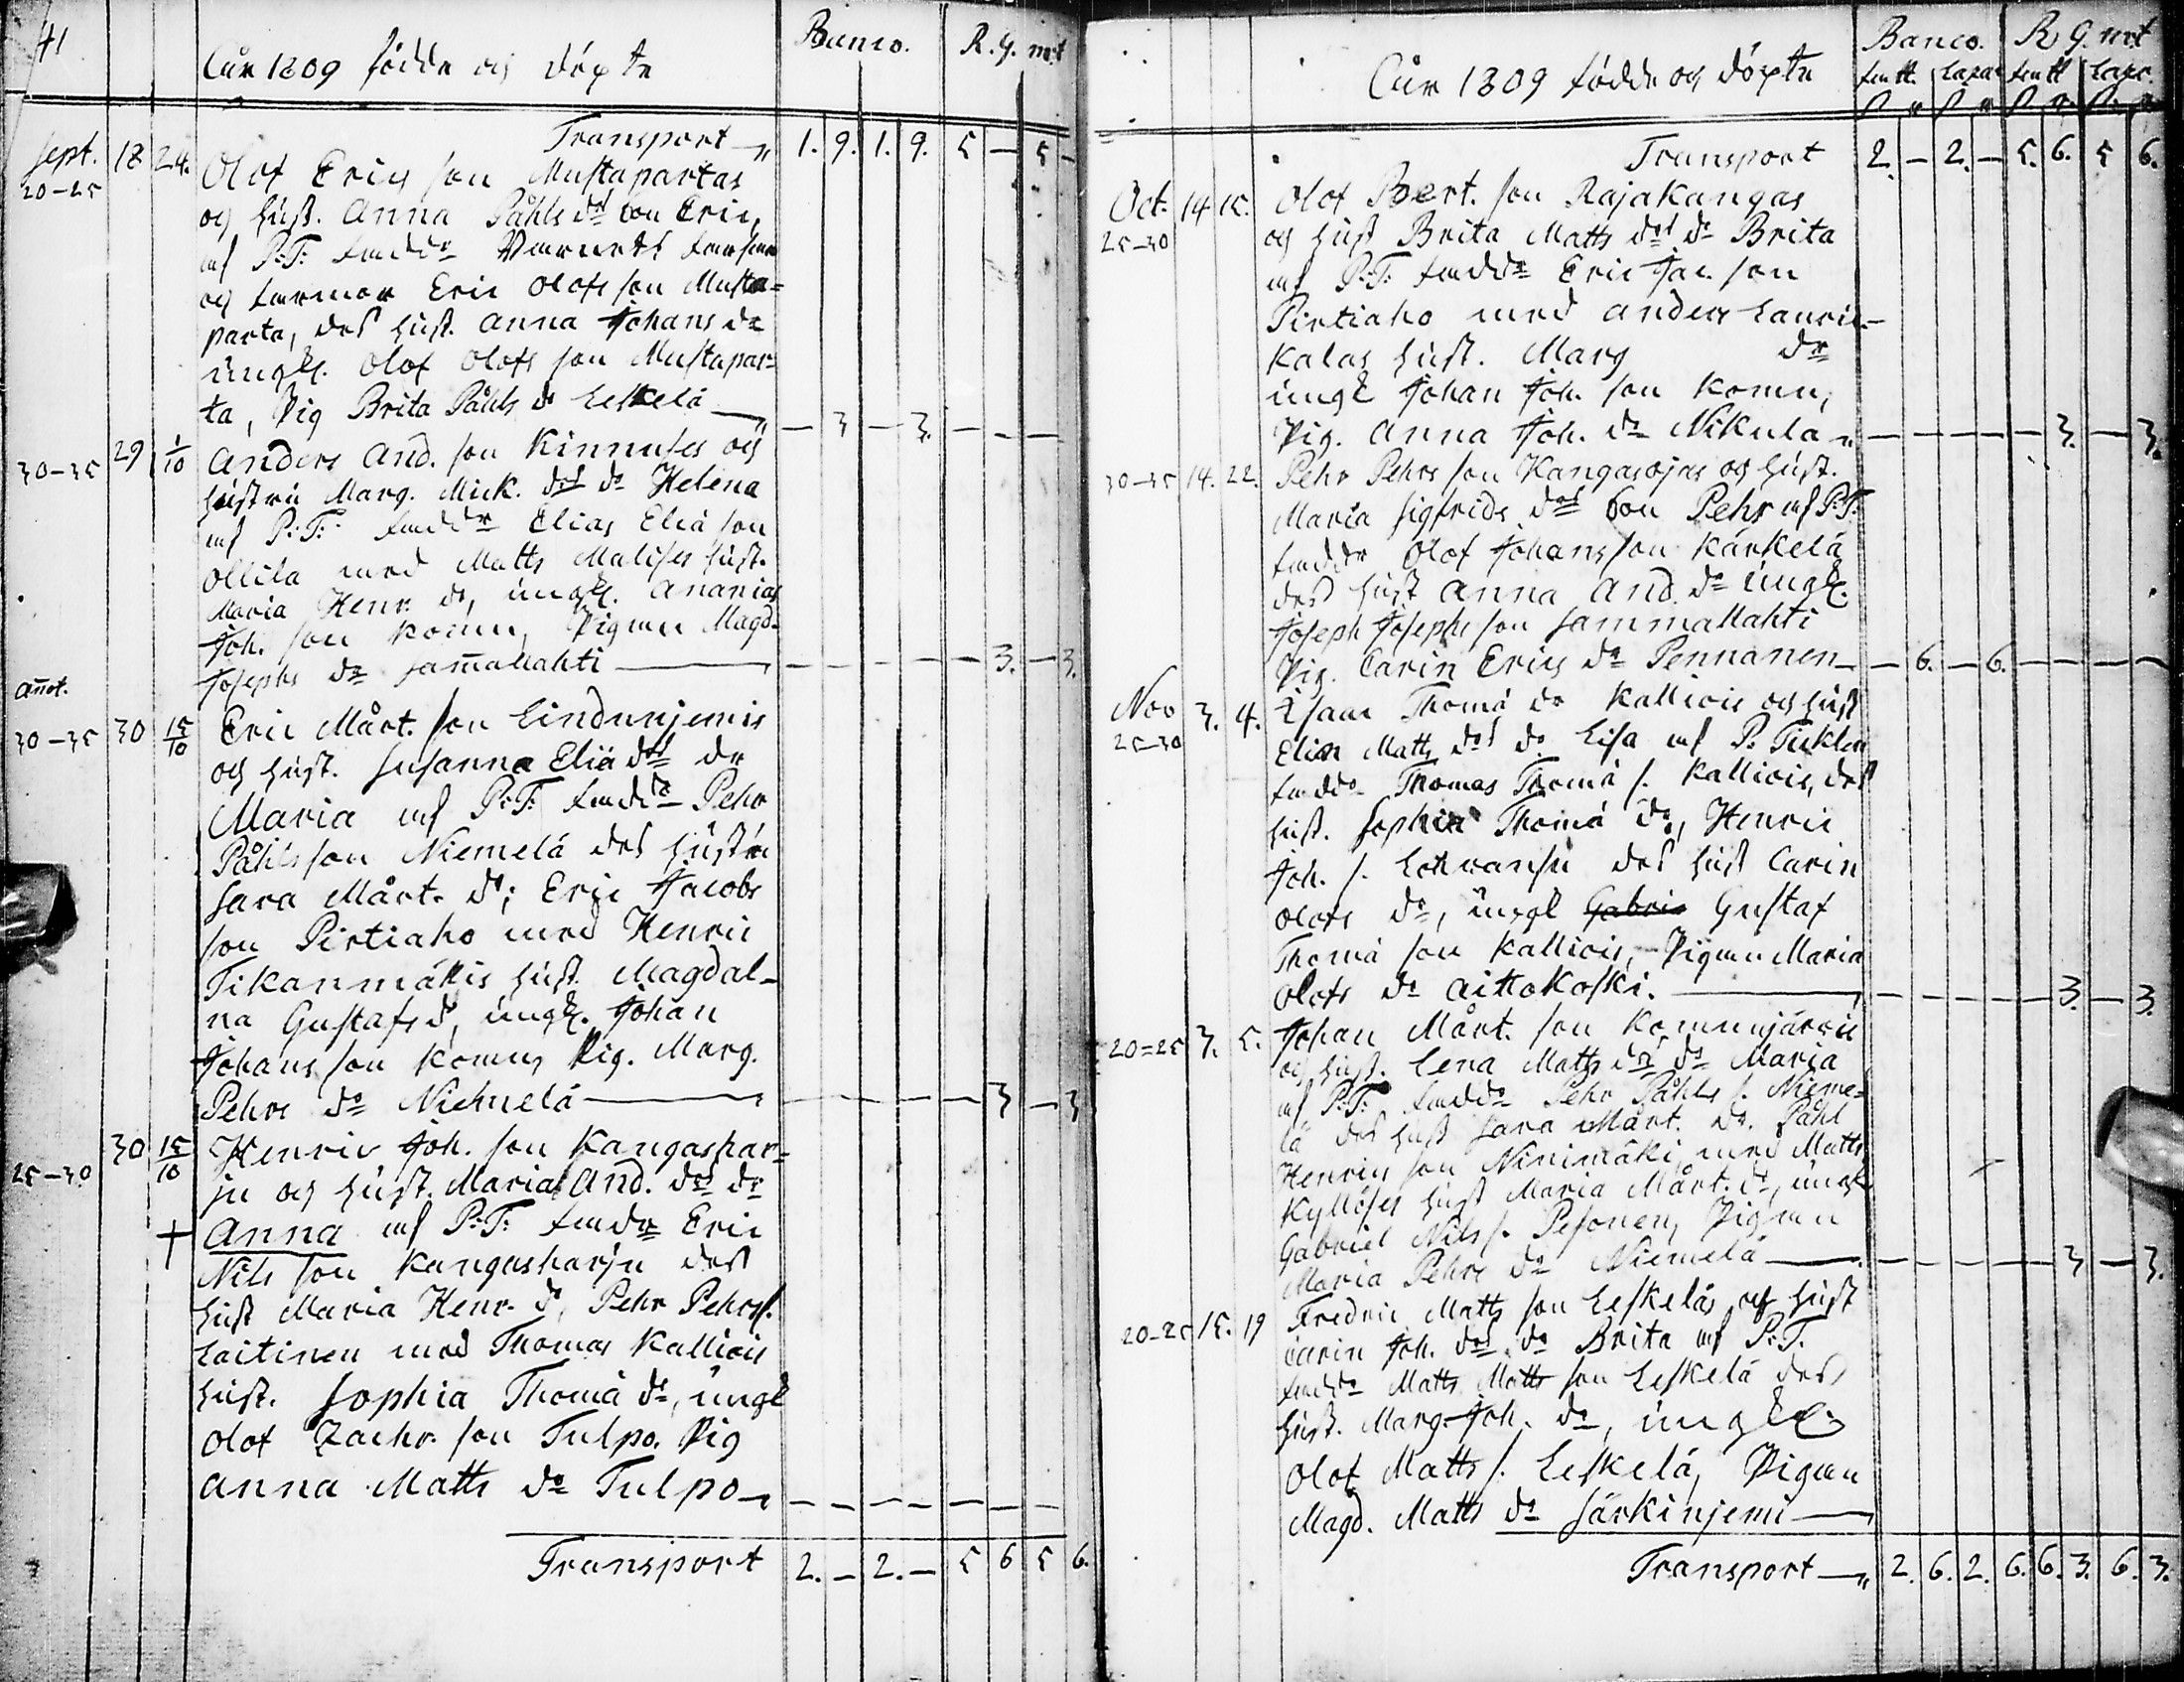 41
Åår 1809 födde og döpte
Banco. R. G. mt
Transport 1. 9. 1. 9. 5 — 5 —
Sept. 18 24. Olof Erics son Mustapartas
20-25 og hust. Anna Påhls dr son Eric,
af P:T: faddr
og farmor Eric Olofs son Musta=
parta, des hust. Anna Johans dr
ungk. Olof Olofs son Mustapar=
ta, Pig Brita Påhls dr Leskelä — 3 — 3. — —
30-35 29 1/10 Anders And. son Kinnuses og
hustru Marg. Mick. drs dr Helena
af P:T: faddr Elias Eliä son
Ollila med Matts Malises hust.
Maria Henr. dr, ungk. Ananias
Joh. son Komu, Pigan Magd.
Josephs dr Sam̄allahti — — — — — 3. — 3.
an̄ot.
30-35 30 15/10 Eric Mårt. son Lindunjemis
og hust. Susanna Eliä drs dr
Maria af P:T: faddr Pehr
Påhls son Niemelä des hustru
Sara Mårt. dr; Eric Jacobs
son Pirtiaho med Henric
Tikanmäkis hust. Magdal-
na Gustafs dr, ungk. Johan
Johans son Komu, Pig. Marg.
Pehrs dr Niemelä — — — — — 3 — 3
25-30 30 15/10 Henric Joh. son Kangashar=
ju og hust. Maria And. drs dr
† Anna af P:T: faddr Eric
Nils son Kangasharju des
hust Maria Henr. dr, Pehr Pehrs s.
Laitinen med Thomas Kalliois
hust. Sophia Thomä dr, ungk
Olof Zachr. son Tulpo. Pig
Anna Matts dr Tulpo — — — — — — —
Transport 2. — 2. — 5 6 5 6.
Åår 1809 födde og döpte
Banco. R G. mt
Transport 2. — 2. — 5. 6. 5 6.
Oct. 14 15. Olof Bert. son Rajakangas
25-30 og hust Brita Matts drs dr Brita
af P:T: faddr Eric Jac. son
Pirtiaho med Anders Lauri-
kalas hust. Marg dr
ungk Johan Joh. son Komu,
Pig. Anna Joh. dr Nikula — — — — — 3. — 3.
30-35 14. 22. Pehr Pehrs son Kangasojas og hust.
Maria Sigfrids drs son Pehr af P:T:
faddr Olof Johans son Kärkelä
des hust Anna And. dr ungk.
Joseph Josephs son Sammallahti
Pig. Carin Erics dr Pennanen — 6. — 6. — — — —
Nov 3. 4. Isaac Thomä dr Kalliois og hust
25-30 Elin Matts drs dr Lisa af P.
faddr Thomas Thomä s. Kalliois, des
hust. Sophia Thomä dr, Henric
Joh. s. des hust Carin
Olofs dr, ungk Gabrie Gustaf
Thomä son Kalliois, Pigan Maria
Olofs dr Aittokoski. — — — — — 3. — 3.
20=25 3. 5. Johan Mårt. son Komunjärvis
og hust. Lena Matts drs dr Maria
af P:T: faddr Pehr Påhls s. Nieme=
lä des hust Sara Mårt. dr. Påhl
Henrics son Ninimäki med Matts
Kyllöses hust Maria Mårt. dr, ungk
Gabriel Nils s. Pesonen, Pigan
Maria Pehrs dr Niemelä — — — — — 3 — 3.
20-25 15. 19 Fredric Matts son Leskeläs og hust
Carin Joh. drs dr Brita af P:T.
faddr Matts Matts son Leskelä des
hust. Marg. Joh. dr, ungk.
Olof Matts s. Leskelä, Pigan
Magd. Matts dr Särkinjemi —
Transport — 2. 6. 2. 6. 6. 3. 6. 3.